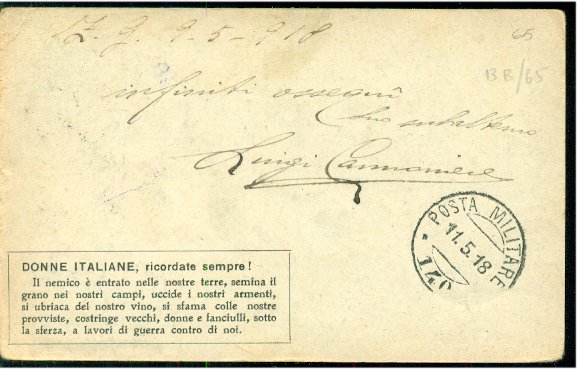 Z. G. 9-5-918
65
BB/65
infiniti ossequi
Suo subalterno
Luigi Cannoniere
POSTA MILITARE
11.5.18
DONNE ITALIANE, ricordate sempre!
Il nemico è entrato nelle nostre terre, semina il
grano nei nostri campi, uccide i nostri armenti,
si ubriaca del nostro vino, si sfama colle nostre
provviste, costringe vecchi, donne e fanciulli, sotto
la sferza, a lavori di guerra contro di noi.